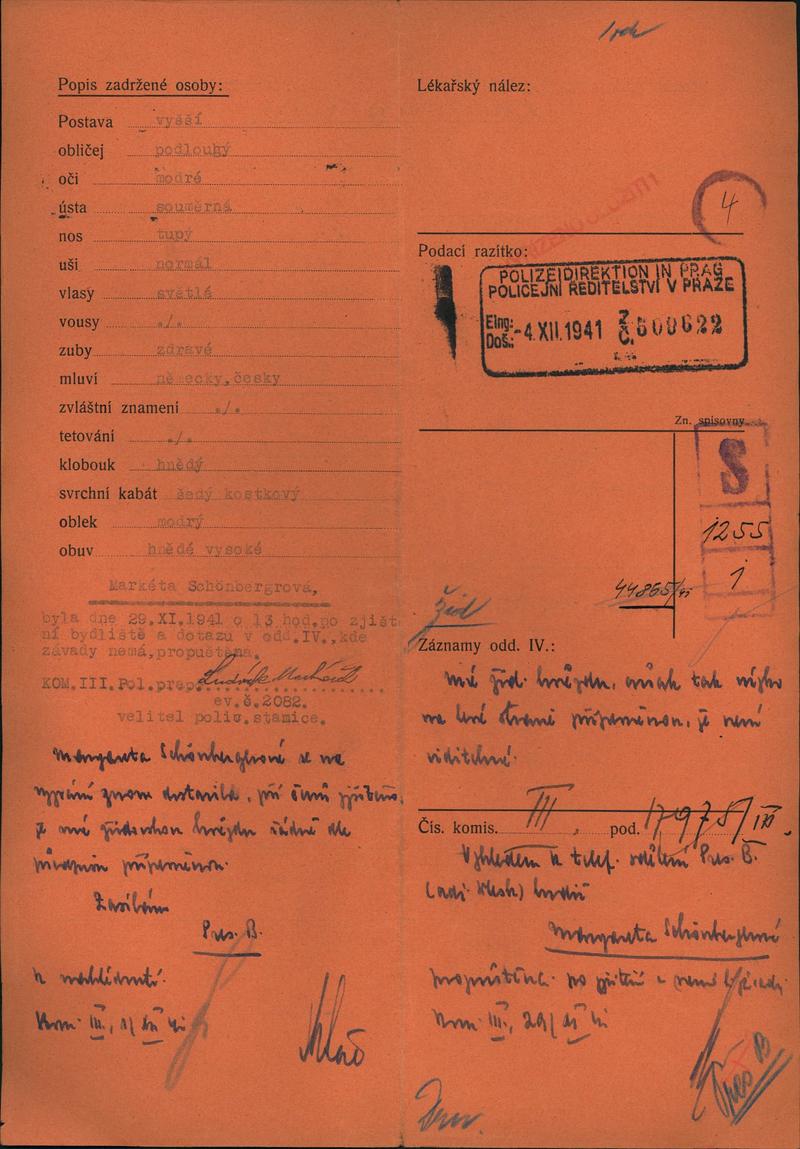 Popis zadržené osoby:
Postava vyšší
obličej podlouhý
oči modré
ústa souměrná
nos tupý
uši normál
vlasy světlé
vousy ./.
zuby zdravé
mluví německy,česky
zvláštní znamení ./.
tetování ./.
klobouk hnědý
svrchní kabát šedý kostkový
oblek modrý
obuv hnědé vysoké
Markéta Schönbergrová,
byla dne 29.XI.1941 o 13 hod.po zjiště
ní bydliště a dotazu v odd.IV.,kde
závady nemá,propuštěna.
KOM.III.Pol.prap.
ev.č.2082.
velitel polic.stanice.
Margareta se na
znovu dostavila, při čemž zjištěno,
že má židovskou hvězdu řádně dle
předpisu
Zasílám
Pres. B.
k nahlédnutí.
Kom. III,
Lékařský nález:
4
Podací razítko:
POLIZEIDIREKTION IN PRAG
POLICEJNÍ ŘEDITELSTVÍ V PRAZE
Eing:
Doš.: -4.XII.1941 Z Č. 600622
Zn. spisovny
S
1255
1
44865/41
Žid
Záznamy odd. IV.:
má žid. hvězdu, však tak nízko
na levé straně že není
viditelná.
Čís. komis. III, pod. 17975/
Vzhledem k telef. sdělení Pres. B.
Margareta
propuštěna po zjištění
Kom. III, 29/XI 41
Pres B